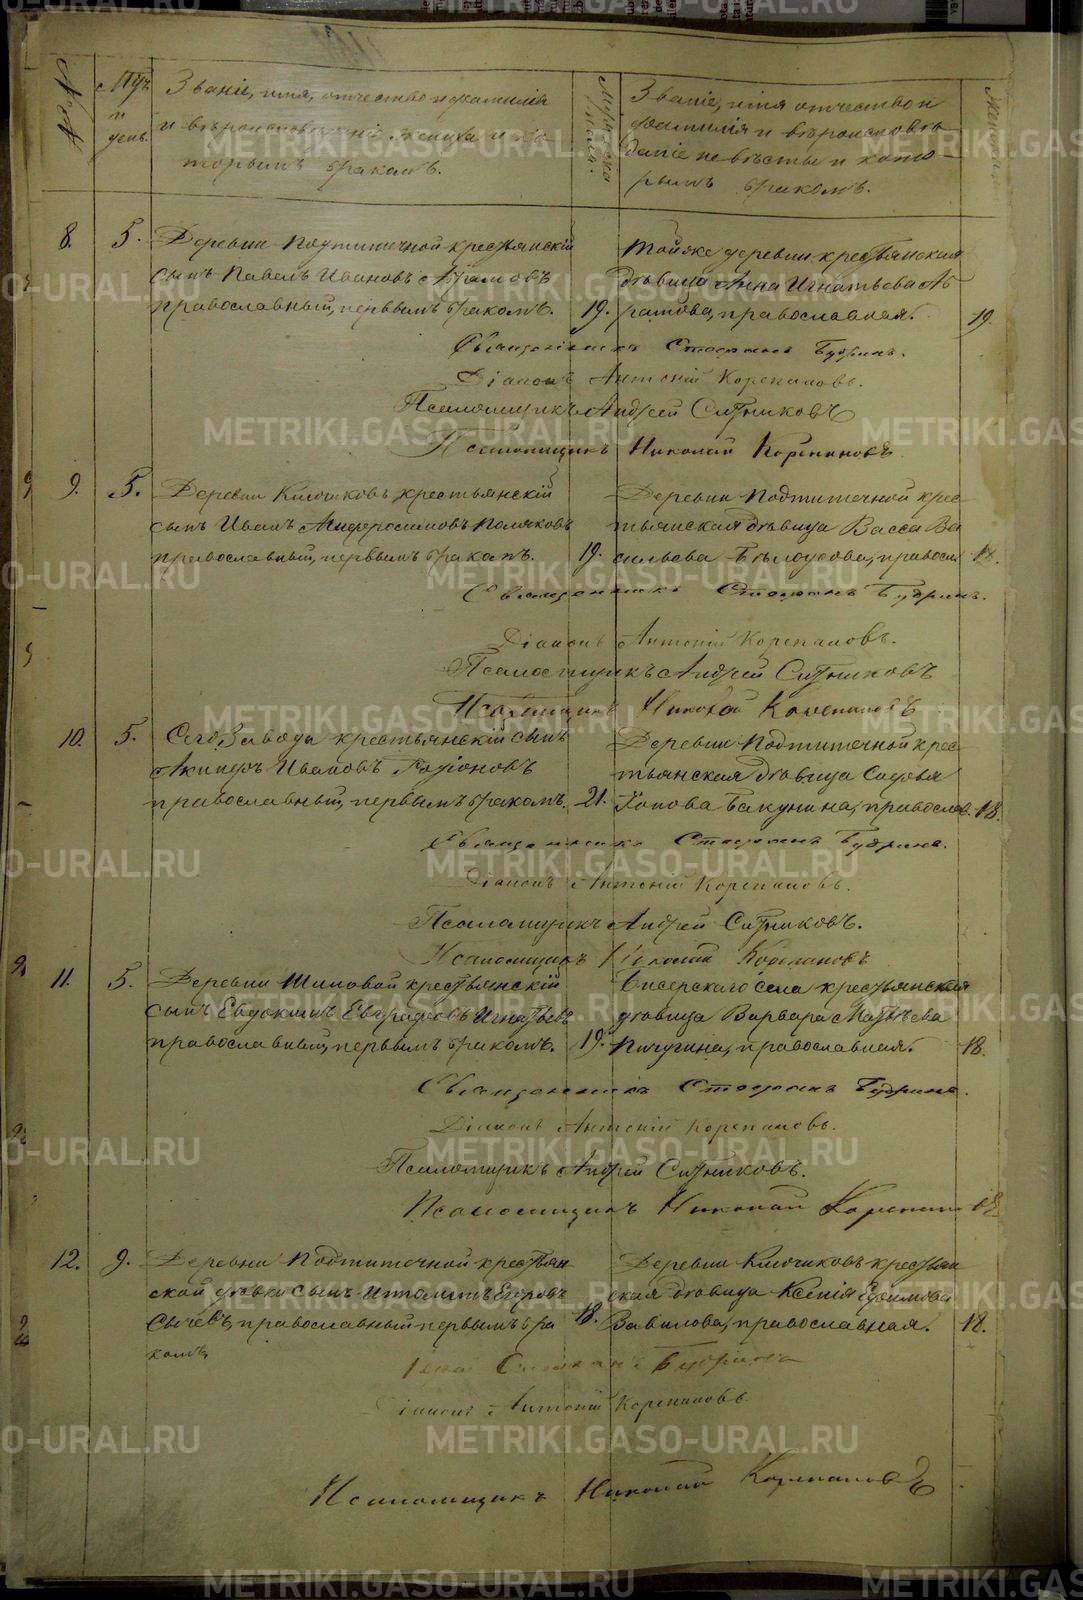 METRIKI.GASO-URAL.RU
№№
Мѣс. и день.
Званіе, имя, отчество и фамилія
и вѣроисповѣданіе жениха и ко-
торымъ бракомъ.
Званіе, имя отчество и
фамилія и вѣроисповѣ-
даніе невѣсты и кото-
рымъ бракомъ.
8. 5. Деревни Подтиничной крестьянскій
сынъ Павелъ Ивановъ Абрамовъ
православный, первымъ бракомъ. 19.
Тойже деревни крестьянская
дѣвица Анна Игнатьева Аб
рамова, православная. 19.
Священникъ Стефанъ Будринъ.
Діаконъ Антоній Корепановъ.
Псаломщикъ Андрей Ситниковъ
Псаломщикъ Николай Корепановъ
9. 5. Деревни Ключиковъ крестьянскій
сынъ Иванъ Андросимовъ Поляковъ
православный, первымъ бракомъ. 19.
Деревни Подтиточной крес-
тьянская дѣвица Васса Ва
сильева Бѣлоусова, правосл 18.
Священникъ Стефанъ Будринъ.
Діаконъ Антоній Корепановъ.
Псаломщикъ Андрей Ситниковъ
Псаломщикъ Николай Корепановъ
10. 5. Село Завода крестьянскій сынъ
Ивановъ Родіоновъ
православный, первымъ бракомъ. 21.
Деревни Подтиточной крес-
тьянская дѣвица Софья
Іонова Бакунина, православ. 18.
Священникъ Стефанъ Будринъ.
Діаконъ Антоній Корепановъ.
Псаломщикъ Андрей Ситниковъ.
Псаломщикъ Николай Корепановъ
11. 5. Деревни Шиловой крестьянскій
сынъ Евдокимъ Евграфовъ Игнатьевъ
православный, первымъ бракомъ. 19.
Бисерскаго села крестьянская
дѣвица Варвара Матвѣева
Пичугина, православная. 18.
Священникъ Стефанъ Будринъ.
Діаконъ Антоній Корепановъ.
Псаломщикъ Андрей Ситниковъ.
Псаломщикъ Николай Корепан
12. 9. Деревни Подтиточной крестьян
ской дѣвки сынъ Ипполитъ Егоровъ
Сычевъ, православный первымъ бра
комъ 18.
Деревни Ключиковъ крестьян
ская дѣвица Ксенія Ефимова
Вавилова, православная. 18.
Стефанъ Будринъ
Діаконъ Антоній Корепановъ
Псаломщикъ Николай Корепановъ